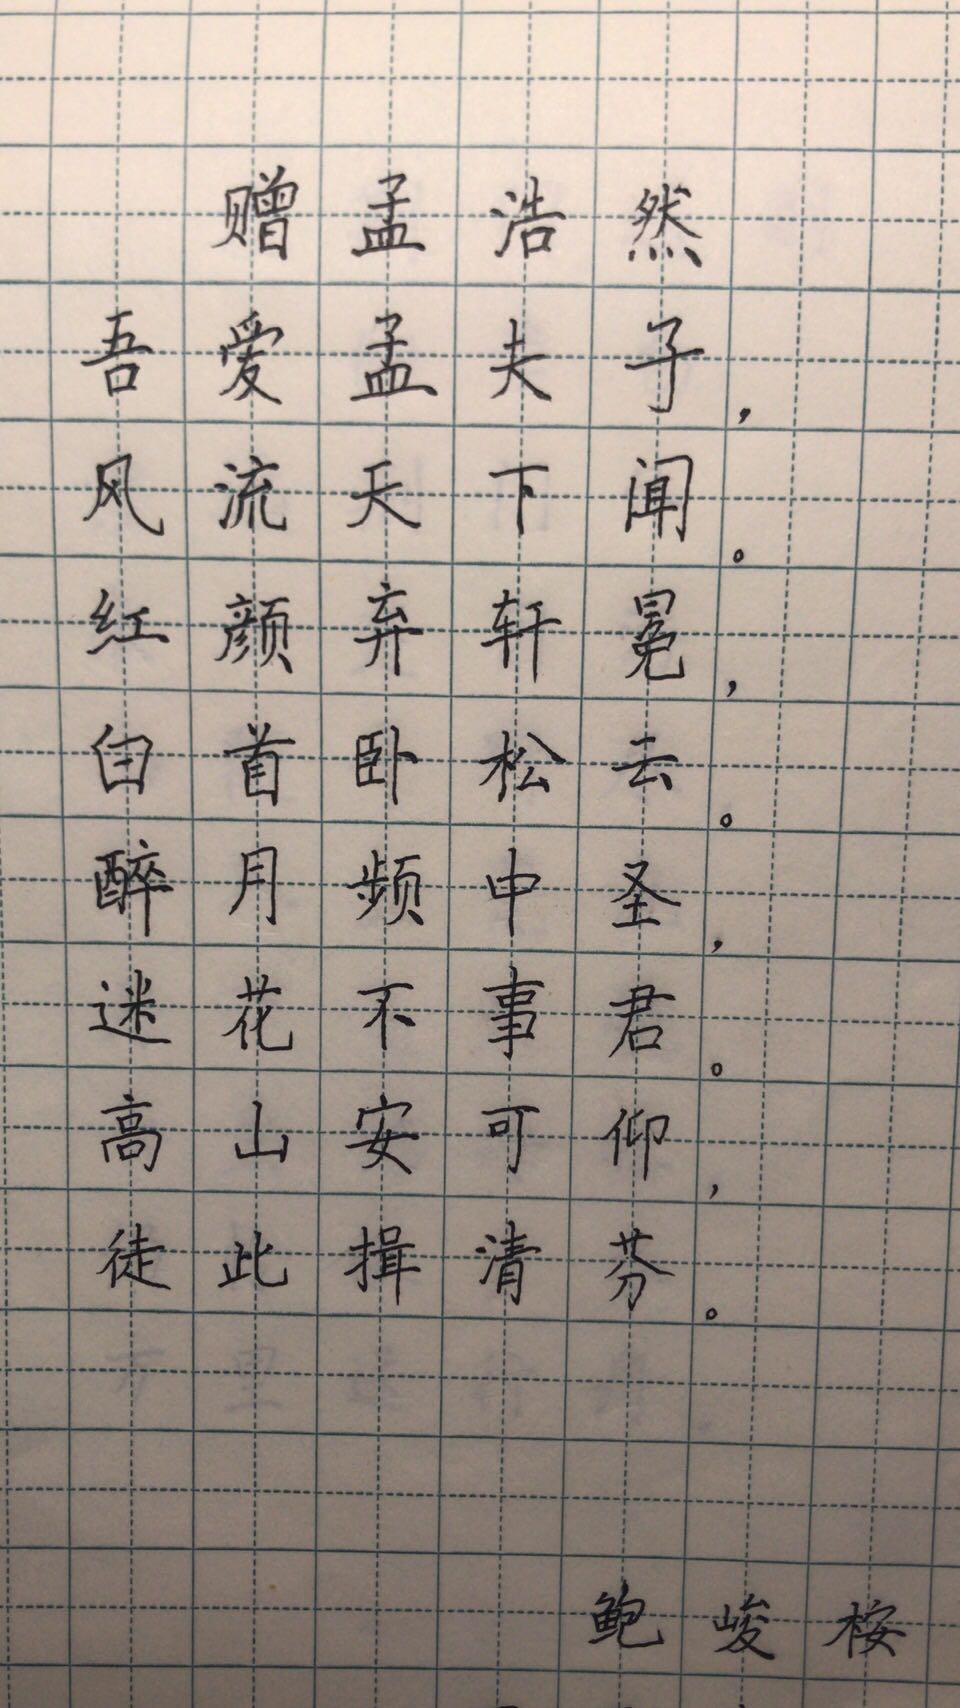 赠孟浩然
吾爱孟夫子,
风流天下闻。
红颜弃轩冕,
白首卧松云。
醉月频中圣,
迷花不事君。
高山安可仰,
徒此揖清芬。
鲍峻桉